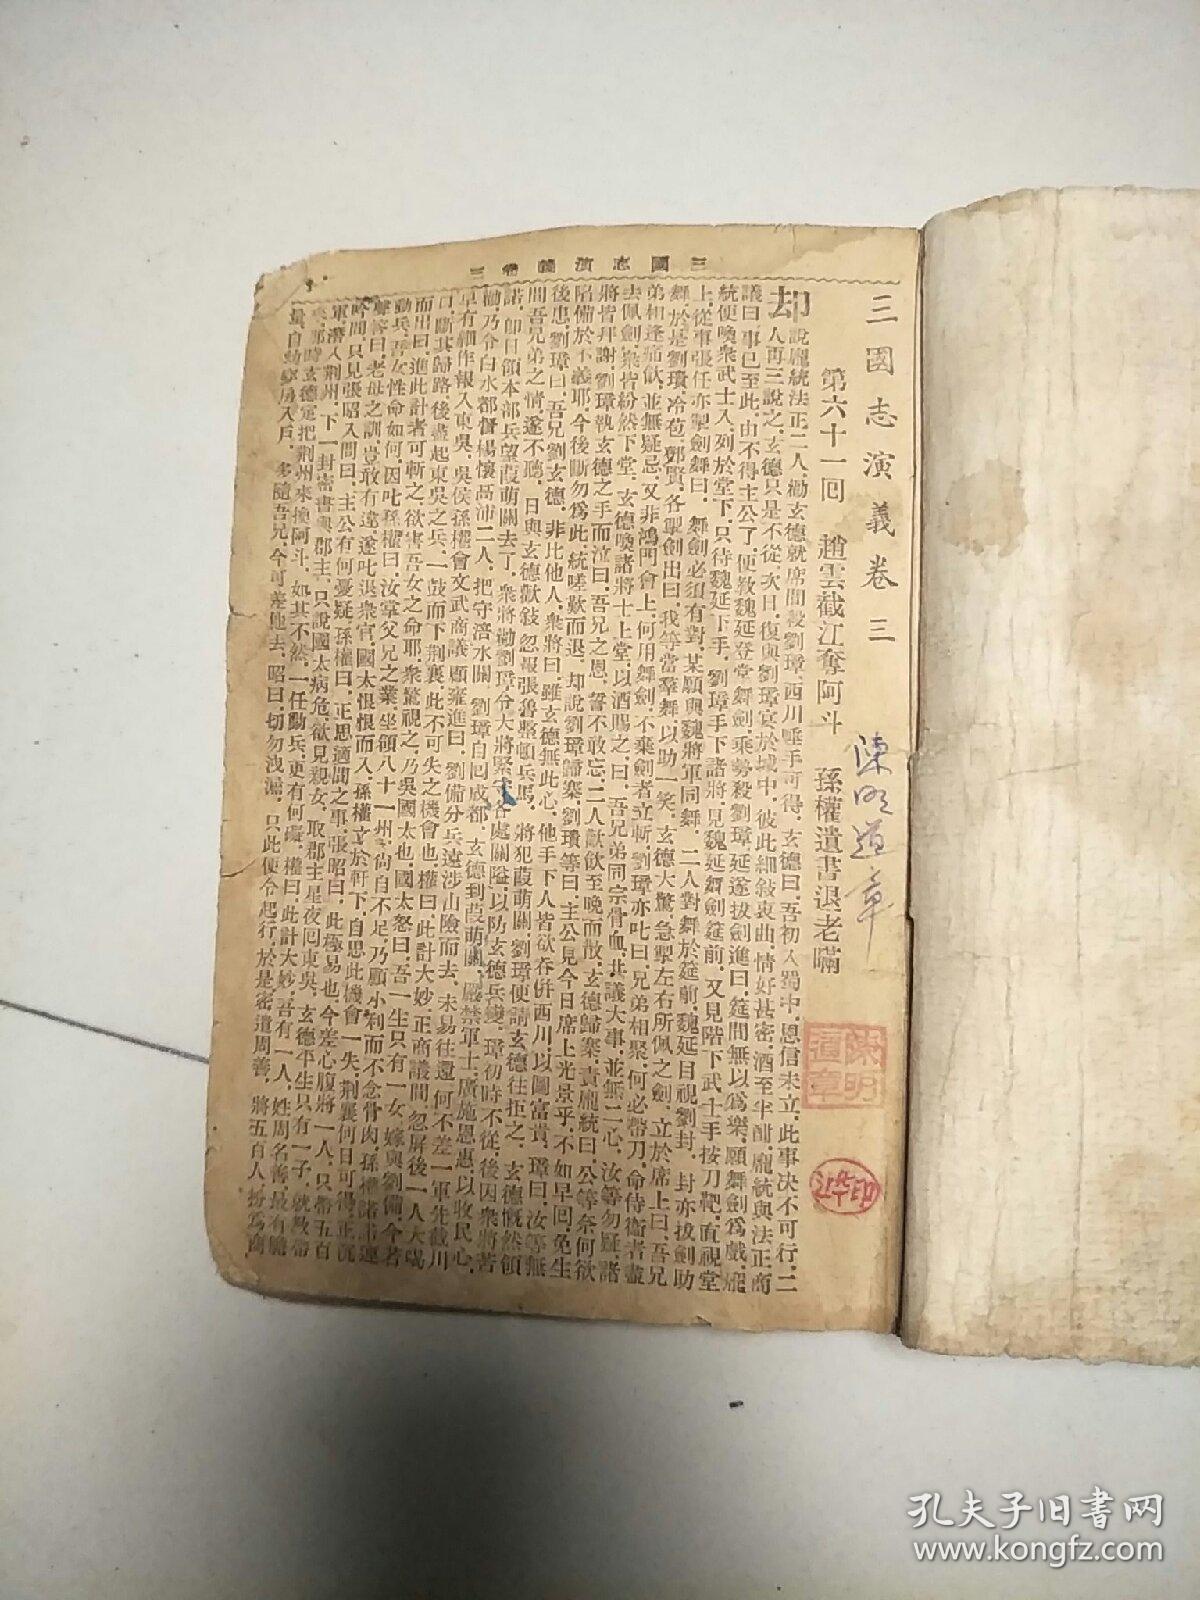 三國志演義卷三
三國志演義卷三
第六十一回 趙雲截江奪阿斗 孫權遺書退老瞞
却說龐統法正二人,勸玄德就席間殺劉璋,西川唾手可得,玄德曰,吾初入蜀中,恩信未立,此事决不可行,二
人再三說之,玄德只是不從,次日,復與劉璋宴於城中,彼此細敍衷曲,情好甚密,酒至半酣,龐統與法正商
議曰,事已至此,由不得主公了,便教魏延登堂舞劍,乘勢殺劉璋,延遂拔劍進曰,筵間無以爲樂,願舞劍爲戲,龐
統便喚衆武士入,列於堂下,只待魏延下手,劉璋手下諸將,見魏延舞劍筵前,又見階下武士手按刀靶,直視堂
上,從事張任亦掣劍舞曰,舞劍必須有對,某願與魏將軍同舞,二人對舞於筵前,魏延目視劉封,封亦拔劍助
舞,於是劉璝冷苞鄧賢,各掣劍出曰,我等當羣舞,以助一笑,玄德大驚,急掣左右所佩之劍,立於席上曰,吾兄
弟相逢痛飲,並無疑忌,又非鴻門會上,何用舞劍,不棄劍者立斬,劉璋亦叱曰,兄弟相聚,何必帶刀,命侍衞者,盡
去佩劍,衆皆紛然下堂,玄德喚諸將士上堂,以酒賜之,曰,吾兄弟同宗骨血,共議大事,並無二心,汝等勿疑,諸
將皆拜謝,劉璋執玄德之手而泣曰,吾兄之恩,誓不敢忘,二人歡飲至晚而散,玄德歸寨,責龐統曰,公等奈何欲
陷備於不義耶,今後斷勿爲此,統嗟歎而退,却說劉璋歸寨,劉璝等曰,主公見今日席上光景乎,不如早回,免生
後患,劉璋曰,吾兄劉玄德,非比他人,衆將曰,雖玄德無此心,他手下人皆欲吞併西川,以圖富貴,璋曰,汝等無
間吾兄弟之情,遂不聽,日與玄德歡敍,忽報張魯整頓兵馬,將犯葭萌關,劉璋便請玄德往拒之,玄德慨然領
諾,卽日領本部兵望葭萌關去了,衆將勸劉璋令大將緊守各處關隘,以防玄德兵變,璋初時不從,後因衆將苦
勸,乃令白水都督楊懷高沛二人,把守涪水關,劉璋自回成都,玄德到葭萌關,嚴禁軍士,廣施恩惠,以收民心,
早有細作報入東吳,吳侯孫權會文武商議,顧雍進曰,劉備分兵遠涉山險而去,未易往還,何不差一軍先截川
口,斷其歸路,後盡起東吳之兵,一鼓而下荆襄,此不可失之機會也,權曰,此計大妙,正商議間,忽屏後一人大喝
而出曰,進此計者可斬之,欲害吾女之命耶,衆驚視之,乃吳國太也,國太怒曰,吾一生只有一女,嫁與劉備,今若
動兵,吾女性命如何,因叱孫權曰,汝掌父兄之業,坐領八十一州,尙自不足,乃顧小利而不念骨肉,孫權諾諾連
聲,答曰,老母之訓,豈敢有違,遂叱退衆官,國太恨恨而入,孫權立於軒下,自思此機會一失,荆襄何日可得,正沉
吟間,只見張昭入問曰,主公有何憂疑,孫權曰,正思適聞之事,張昭曰,此極易也,今差心腹將一人,只帶五百
軍潛入荆州,下一封密書與郡主,只說國太病危,欲見親女,取郡主星夜回東吳,玄德平生只有一子,就敎帶
來,那時玄德定把荆州來換阿斗,如其不然,一任動兵,更有何礙,權曰,此計大妙,吾有一人,姓周名善,最有膽
量,自幼穿房入戶,多隨吾兄,今可差他去,昭曰,切勿洩漏,只此便令起行,於是密遣周善,將五百人扮爲商
陳明道章
陳明道章
孔夫子旧書网
www.kongfz.com